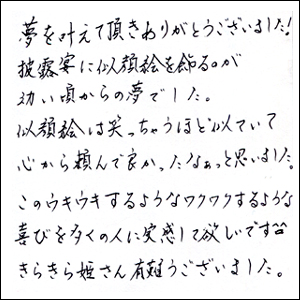 夢を叶えて頂きありがとうございました!
披露宴に似顔絵を飾るのが
幼い頃からの夢でした。
似顔絵は笑っちゃうほど似ていて
心から頼んで良かったなぁっと思いました。
このウキウキするようなワクワクするような
喜びを多くの人に実感して欲しいです^^
きらきら姫さん有難うございました。